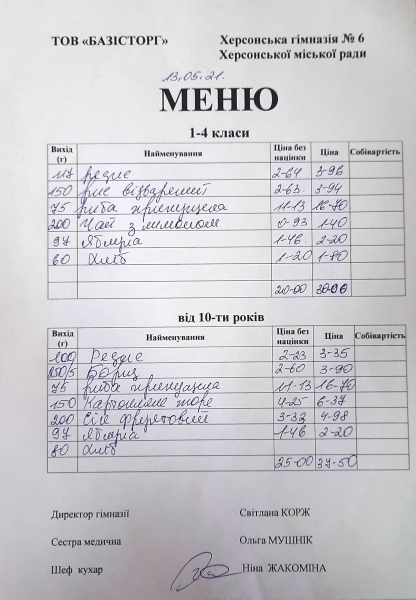 ТОВ «БАЗІСТОРГ» Херсонська гімназія № 6
Херсонської міської ради
13.05.21.
МЕНЮ
1-4 класи
Вихід (г) Найменування Ціна без націнки Ціна Собівартість
117 редис 2-64 3-96
150 рис відварений 2-63 3-94
75 риба припущена 11-13 16-70
200 Чай з лимоном 0-93 1-40
97 Яблука 1-46 2-20
60 Хліб 1-20 1-80
20-00 30-00
від 10-ти років
Вихід (г) Найменування Ціна без націнки Ціна Собівартість
100 Редис 2-23 3-35
250/5 Борщ 2-60 3-90
75 риба припущена 11-13 16-70
150 Картопляне пюре 4-25 6-37
200 Сік фруктовий 3-32 4-98
97 Яблука 1-46 2-20
60 Хліб
25-00 37-50
Директор гімназії Світлана КОРЖ
Сестра медична Ольга МУШНІК
Шеф кухар Ніна ЖАКОМІНА